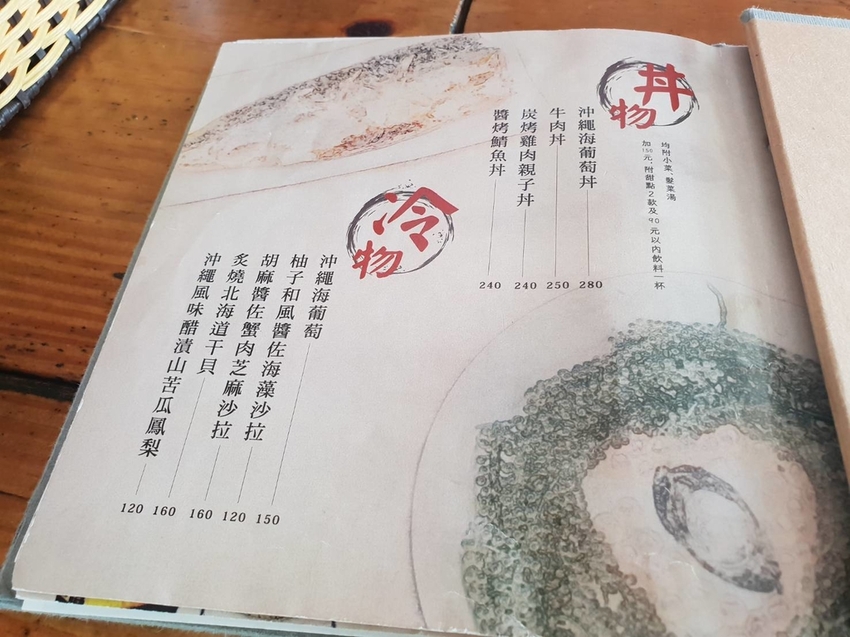 丼物
均附小菜、髮菜湯
加150元，附甜點2款及90元以內飲料一杯
沖繩海葡萄丼 280
牛肉丼 250
炭烤雞肉親子丼 240
醬烤鯖魚丼 240
冷物
沖繩海葡萄 150
柚子和風醬佐海藻沙拉 120
胡麻醬佐蟹肉芝麻沙拉 160
炙燒北海道干貝 160
沖繩風味醋漬山苦瓜鳳梨 120